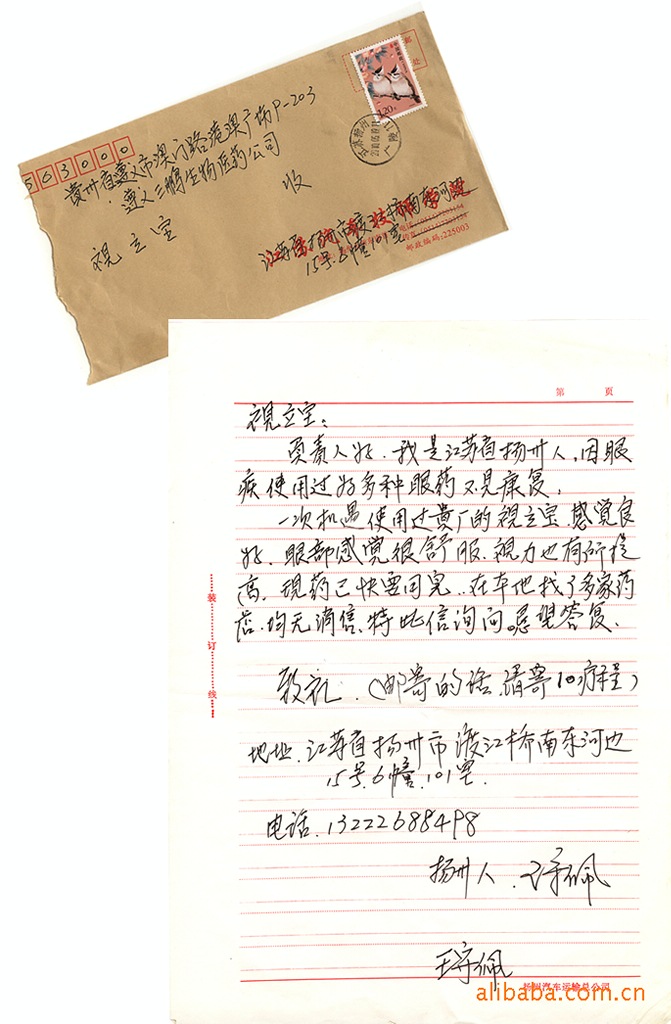 563000
贵州省遵义市澳门路港澳广场P-203
遵义三鹏生物医药公司
收
視立宝
江苏省扬州市渡江桥南东河边
15号6幢101室
邮政编码:225003
120
第 页
視立宝:
负责人好.我是江苏省扬州人,因眼
疾使用过好多种眼药不见康复,
一次机遇使用过贵厂的視立宝.感觉良
好.眼部感觉很舒服.視力也有所提
高.现药已快要用完..在本地找了多家药
店.均无消信.特此信询问.恳望答复.
致礼.(邮寄的话.请寄10疗程)
地址.江苏省扬州市渡江桥南东河边
15号.6幢.101室.
电话.13222688498
扬州人.
装
订
线
扬州汽车运输总公司
alibaba.com.cn